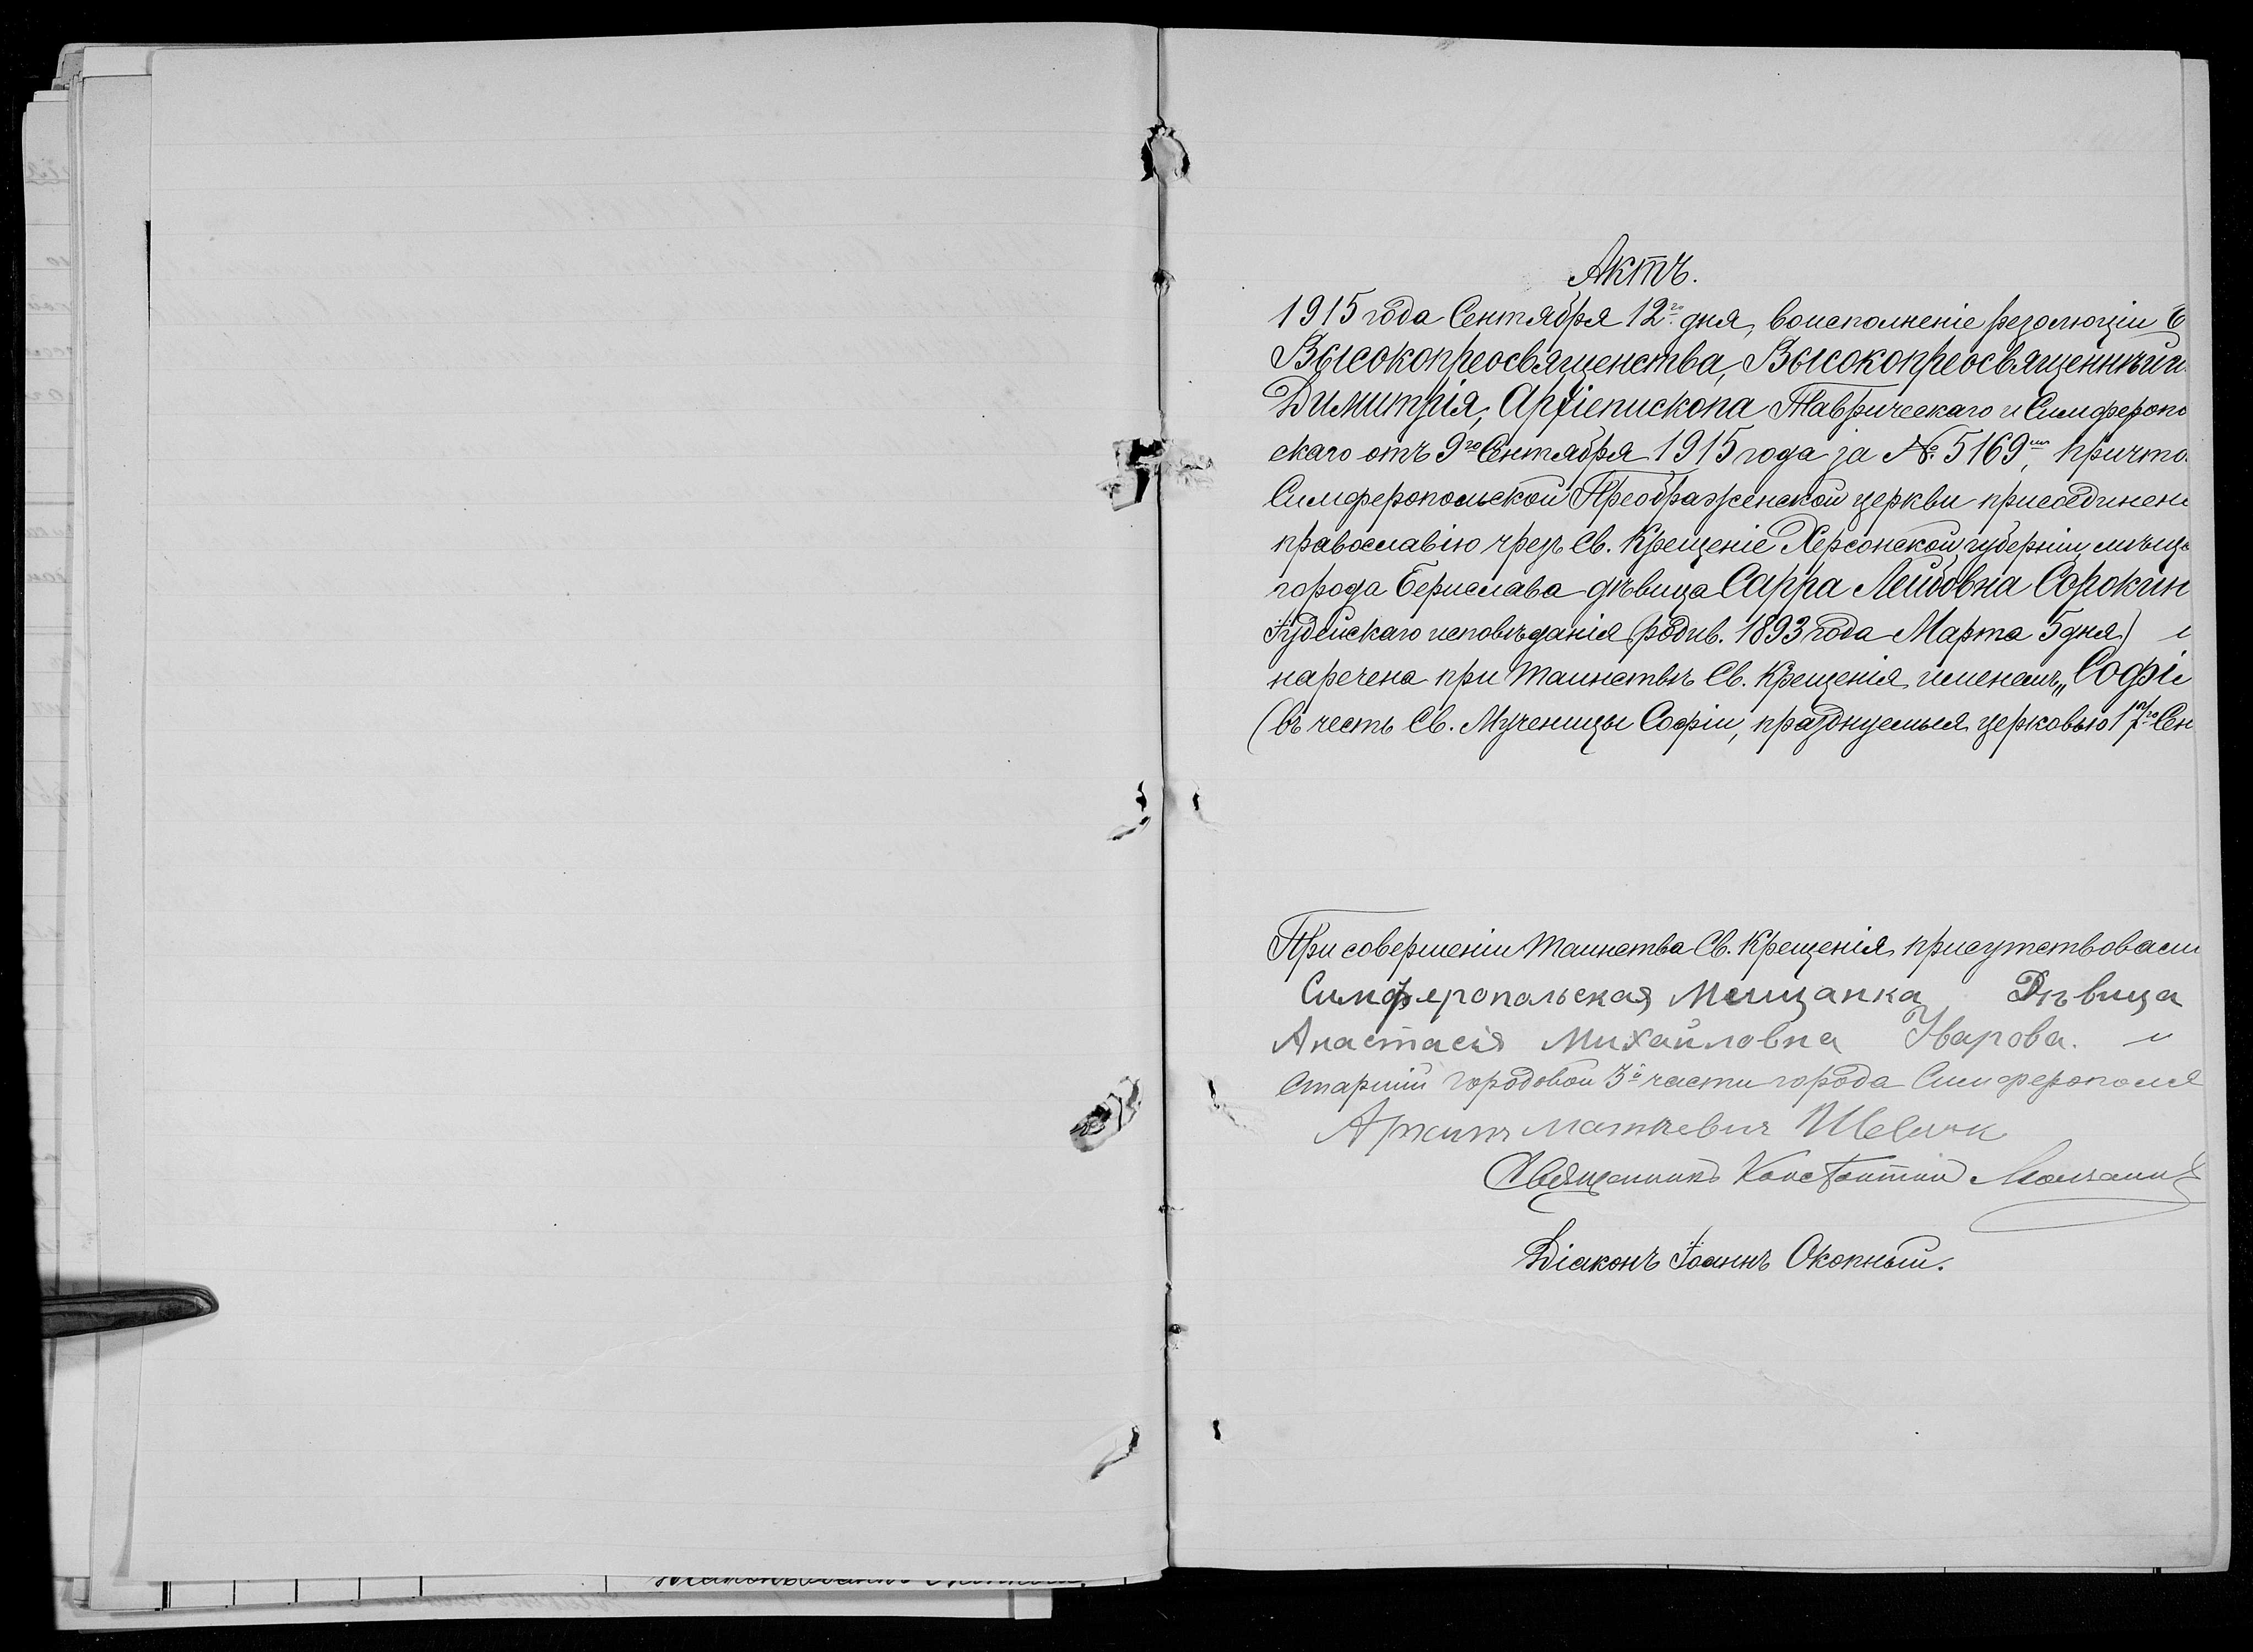 Актъ.
1915 года Сентября 12го дня, воисполненіе резолюціи Е
Высокопреосвященства, Высокопреосвященнѣйш
Димитрія, Архіепископа Таврическаго и Симферопо
скаго отъ 9го Сентября 1915 года за № 5169мъ, причто
Симферопольской Преображенской церкви присоединен
православію чрезъ Св. Крещеніе Херсонской губерніи, мѣща
города Берислава дѣвица Сарра Лейбовна Сорокин
Іудейскаго исповѣданія (родив. 1893 года Марта 5 дня) и
наречена при таинствѣ Св. Крещенія именемъ „Софі
(въ честь Св. Мученицы Софіи, празднуемыя церковью 17го Сен
При совершеніи таинства Св. Крещенія присутствовали
Симферопольская Мещанка Дѣвица
Анастасія Михайловна Уварова. и
Старшій городовой 3й части города Симферополя
Матѣевич
Священникъ Константинъ
Діаконъ Іоаннъ Окопный.